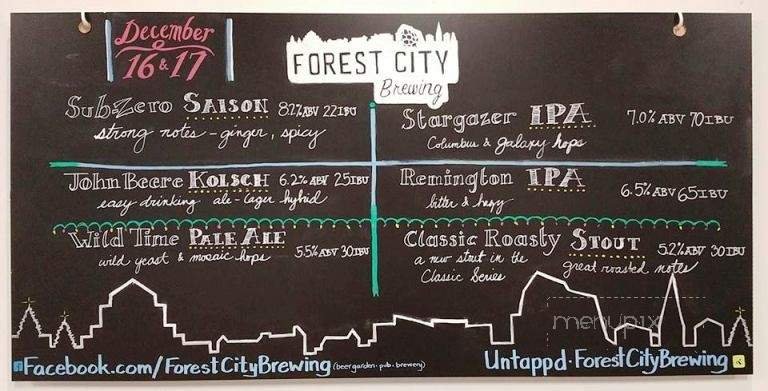 December
16 & 17
FOREST CITY
Brewing
Sub-Zero SAISON 8.2% ABV 22 IBU
strong notes - ginger, spicy
John Beere KOLSCH 6.2% ABV 25 IBU
easy drinking ale-lager hybrid
Wild Time PALE ALE 5.5% ABV 30 IBU
wild yeast & mosaic hops
Stargazer IPA 7.0% ABV 70 IBU
Columbus & galaxy hops
Remington IPA 6.5% ABV 65 IBU
bitter & hoppy
Classic Roasty STOUT 5.2% ABV 30 IBU
a new stout in the
Classic Series
great roasted notes
menupix
Facebook.com/ForestCityBrewing (beer garden · pub · brewery)
Untappd · ForestCityBrewing